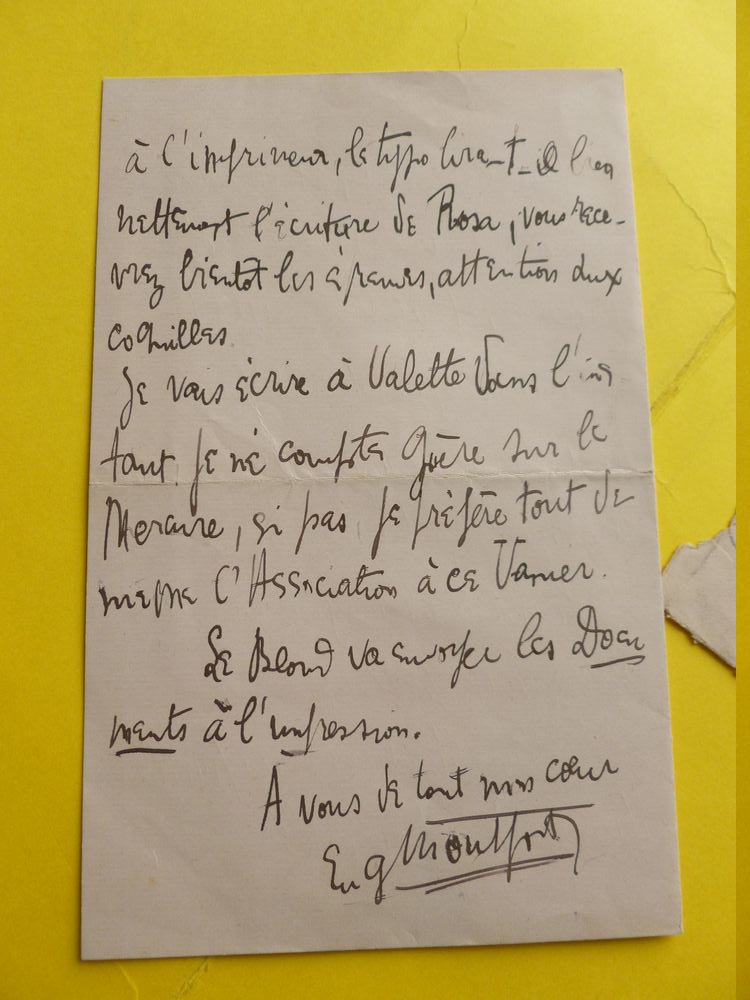 à l'imprimeur, le typo lira-t-il bien
nettement l'écriture de Rosa, vous rece-
vrez bientôt les épreuves, attention aux
coquilles.
Je vais écrire à Valette dans l'ins
tant. Je ne compte guère sur le
Mercure, si pas, je préfère tout de
même l'Association à ce Vanier.
Le Blond va envoyer les Docu
ments à l'impression.
A vous de tout mon cœur
Eug Montfort